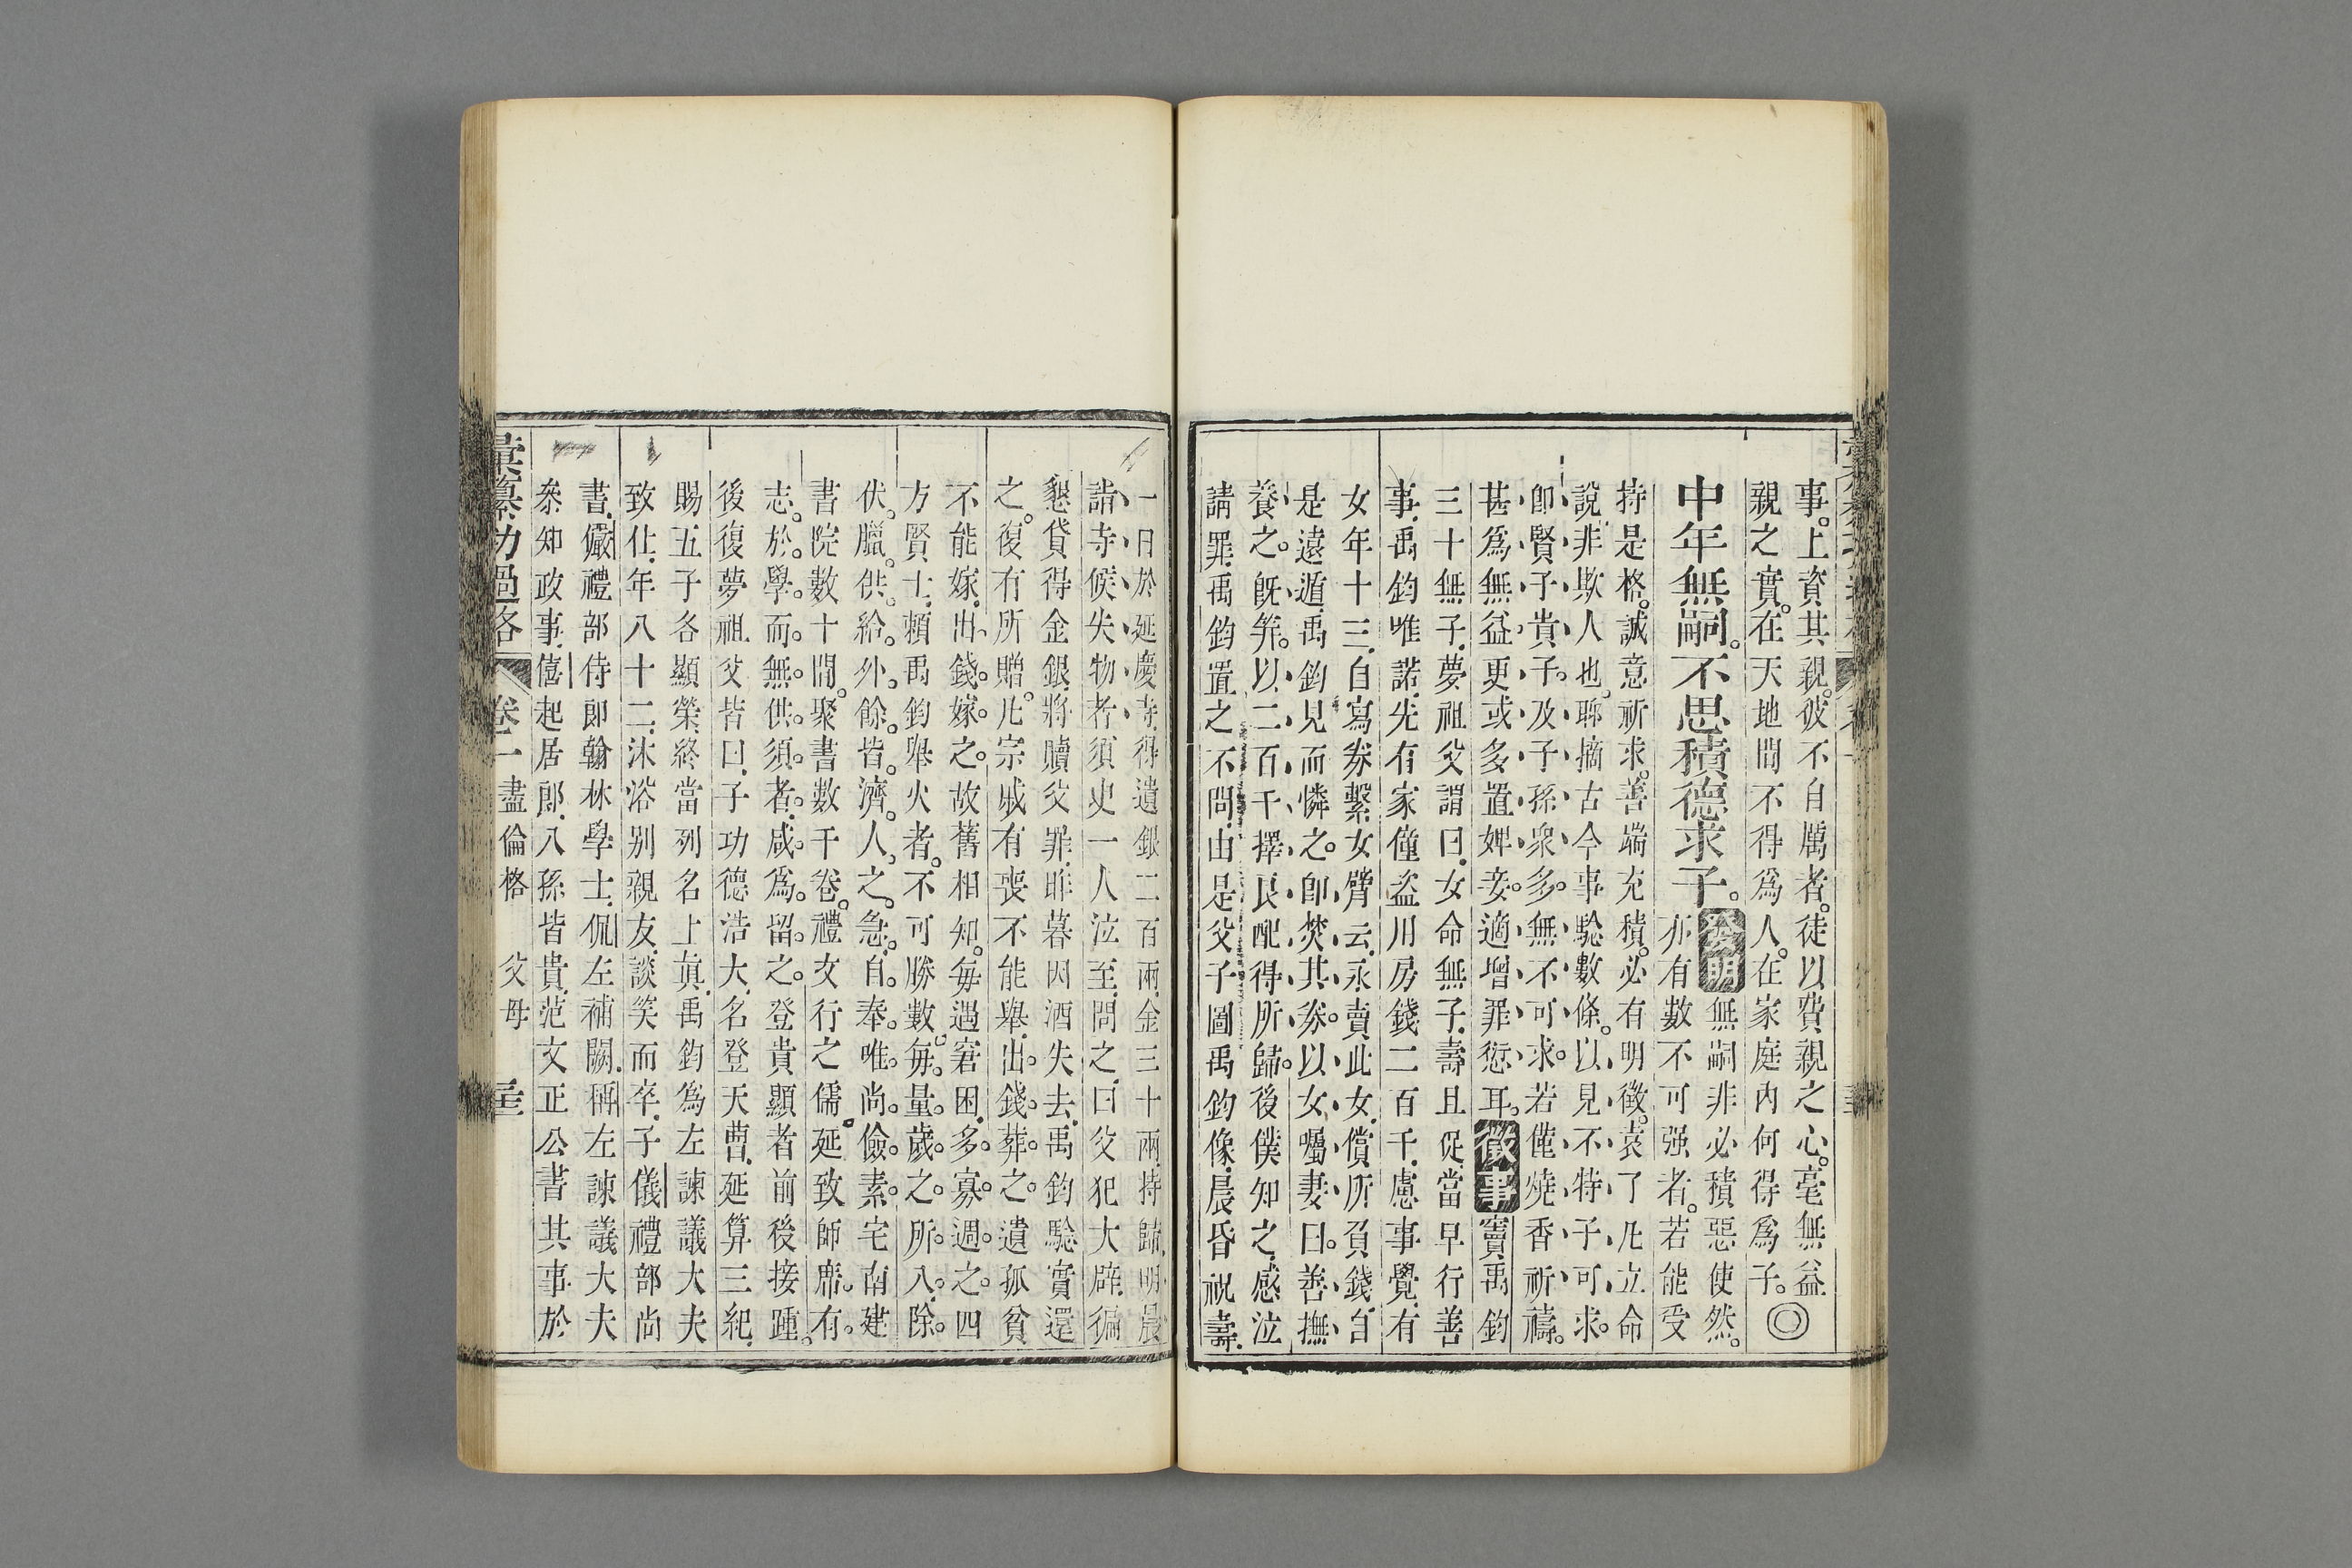 事。上資其親。彼不自厲者。徒以費親之心。毫無益
親之實。在天地間不得爲人。在家庭內何得爲子。◎
中年無嗣。不思積德求子。發明無嗣非必積惡使然。
亦有數不可强者。若能受
持是格。誠意祈求。善端充積。必有明徵。袁了凡立命
說。非欺人也。聊摘古今事驗數條。以見不特子可求。
卽賢子貴子。及子孫衆多。無不可求。若僅燒香祈禱。
甚爲無益。更或多置婢妾。適增罪愆耳。徵事竇禹鈞
三十無子。夢祖父謂曰。女命無子。壽且促。當早行善
事。禹鈞唯諾。先有家僮盜用房錢二百千。慮事覺。有
女年十三。自寫券繫女臂云。永賣此女。償所負錢。自
是遠遁。禹鈞見而憐之。卽焚其券。以女囑妻曰。善撫
養之。旣笄。以二百千擇良配得所歸。後僕知之。感泣
請罪。禹鈞置之不問。由是父子圖禹鈞像。晨昏祝壽。
一日於延慶寺得遺銀二百兩。金三十兩。持歸。明晨
詣寺候失物者。須臾一人泣至。問之。曰父犯大辟。徧
懇貸得金銀。將贖父罪。昨暮因酒失去。禹鈞驗實還
之。復有所贈。凡宗戚有喪不能舉。出錢葬之。遺孤貧
不能嫁。出錢嫁之。故舊相知。每遇窘困。多寡週之。四
方賢士。賴禹鈞舉火者。不可勝數。每量歲之所入。除
伏臘供給外。餘皆濟人之急。自奉唯尚儉素。宅南建
書院數十間。聚書數千卷。禮文行之儒。延致師席。有
志於學而無供須者。咸爲留之。登貴顯者前後接踵。
後復夢祖父皆曰。子功德浩大。名登天曹。延算三紀。
賜五子各顯榮。終當列名上眞。禹鈞爲左諫議大夫
致仕。年八十二。沐浴別親友。談笑而卒。子儀禮部尚
書。儼禮部侍郎翰林學士。侃左補闕。稱左諫議大夫
叅知政事。僖起居郎。八孫皆貴。范文正公書其事於
彙纂功過格 卷一 盡倫格 父母